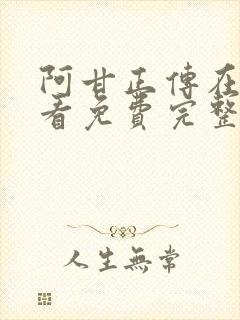 阿甘正傳在
看免費完整
人生無常